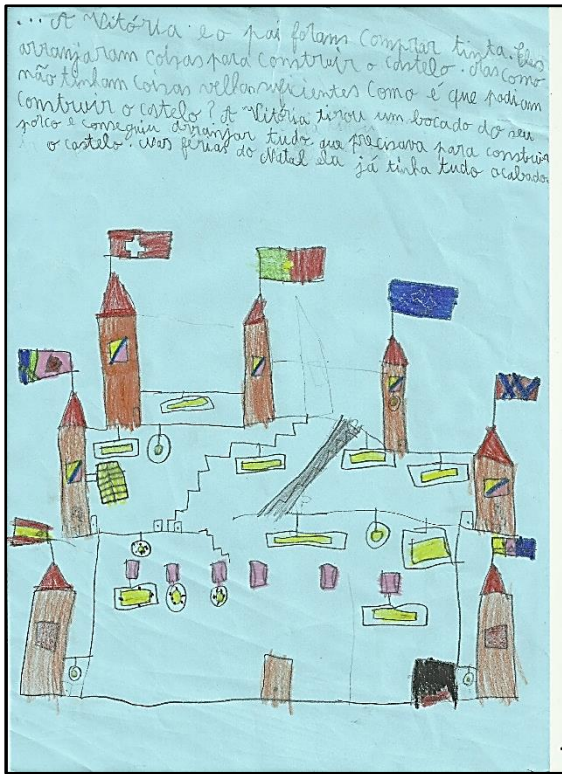 ... A Vitória e o pai foram comprar tinta. Eles
arranjaram coisas para construir o castelo. Mas como
não tinham coisas velhas suficientes como é que podiam
construir o castelo? A Vitória tirou um bocado do seu
porco e conseguiu arranjar tudo que precisava para construir
o castelo. Nas férias do Natal ela já tinha tudo acabado.